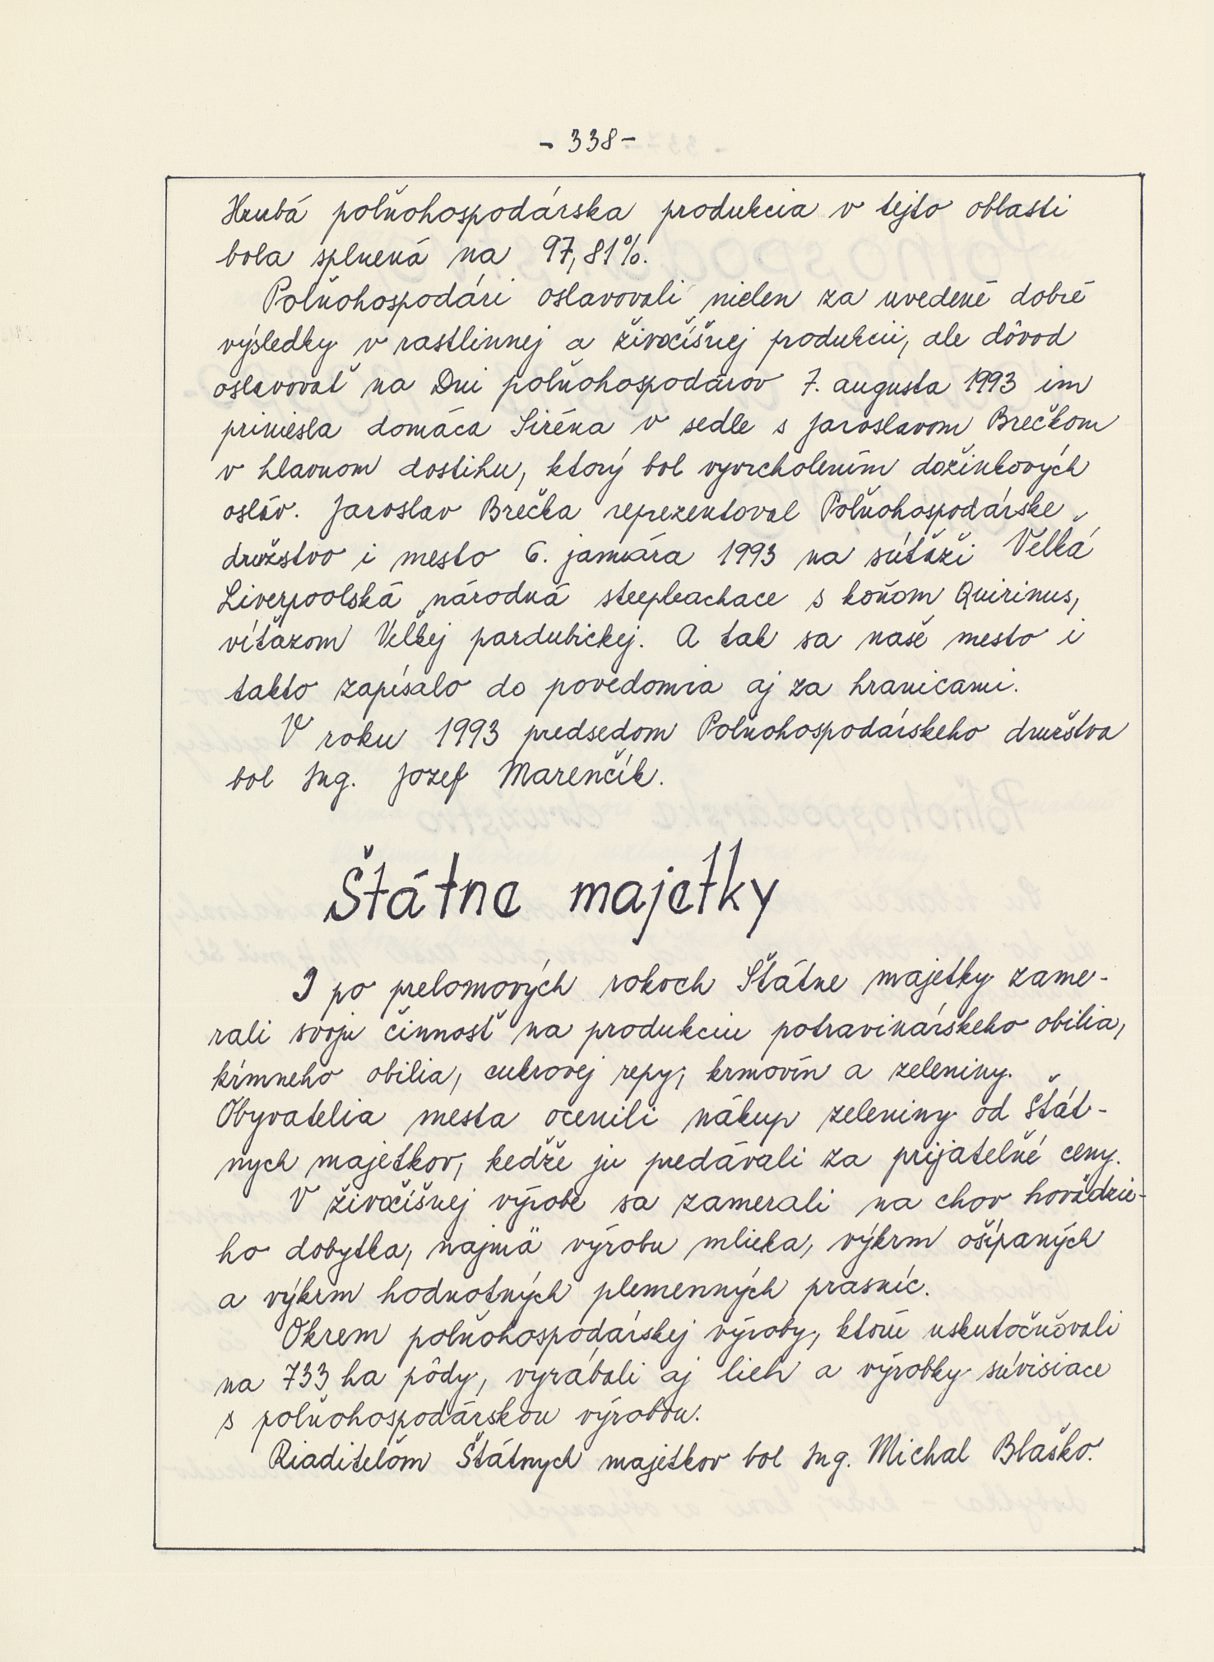 - 338 -
Hrubá poľnohospodárska produkcia v tejto oblasti
bola splnená na 97,81%.
Poľnohospodári oslavovali nielen za uvedené dobré
výsledky v rastlinnej a živočíšnej produkcii, ale dôvod
oslavovať na Dni poľnohospodárov 7. augusta 1993 im
priniesla domáca Siréna v sedle s Jaroslavom Brečkom
v hlavnom dostihu, ktorý bol vyvrcholením dožinkových
osláv. Jaroslav Brečka reprezentoval Poľnohospodárske
družstvo i mesto 6. januára 1993 na súťaži Veľká
Liverpoolská národná steepleachace s koňom Quirinus,
víťazom Veľkej pardubickej. A tak sa naše mesto i
takto zapísalo do povedomia aj za hranicami.
V roku 1993 predsedom Poľnohospodárskeho družstva
bol Ing. Jozef Marenčík.
Štátne majetky
I po prelomových rokoch Štátne majetky zame-
rali svoju činnosť na produkciu potravinárskeho obilia,
kŕmneho obilia, cukrovej repy, krmovín a zeleniny.
Obyvatelia mesta ocenili nákup zeleniny od Štát-
nych majetkov, keďže ju predávali za prijateľné ceny.
V živočíšnej výrobe sa zamerali na chov hovädzie-
ho dobytka, najmä výrobu mlieka, výkrm ošípaných
a výkrm hodnotných plemenných prasníc.
Okrem poľnohospodárskej výroby, ktorú uskutočňovali
na 733 ha pôdy, vyrábali aj lieh a výrobky súvisiace
s poľnohospodárskou výrobou.
Riaditeľom Štátnych majetkov bol Ing. Michal Blaško.